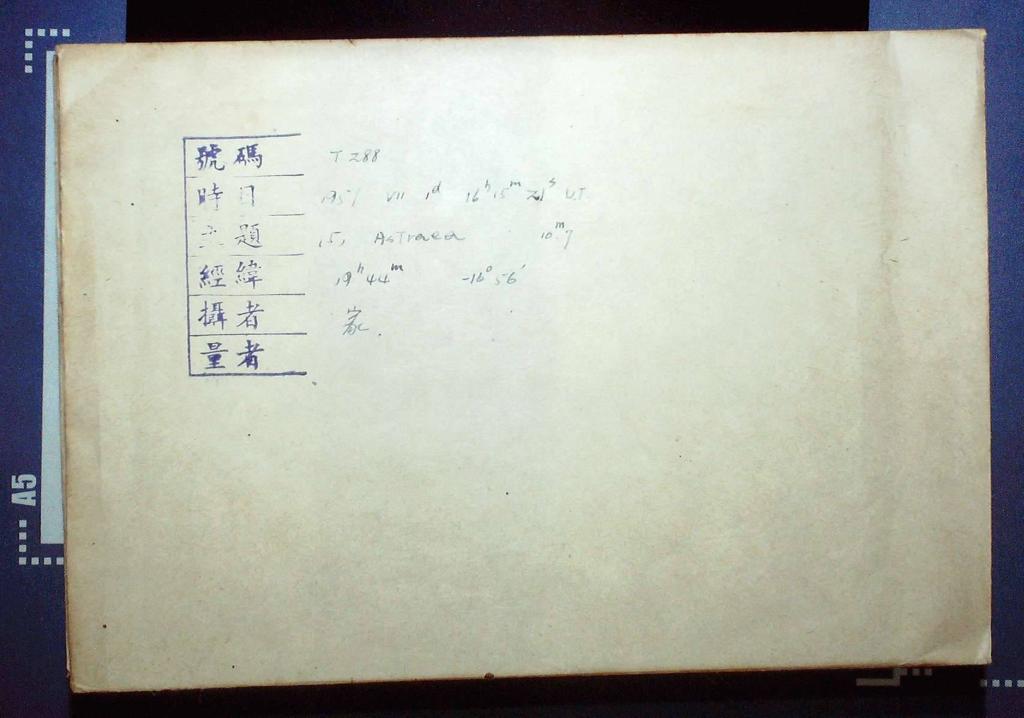 號碼 T 288
時日 1951 VII 1d 16h 15m 21s U.T.
主題 (5) Astraea 10m.7
經緯 19h 44m -16° 56'
攝者
量者
A5